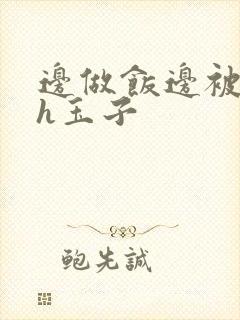 邊做飯邊被
h玉子
鲍先誠